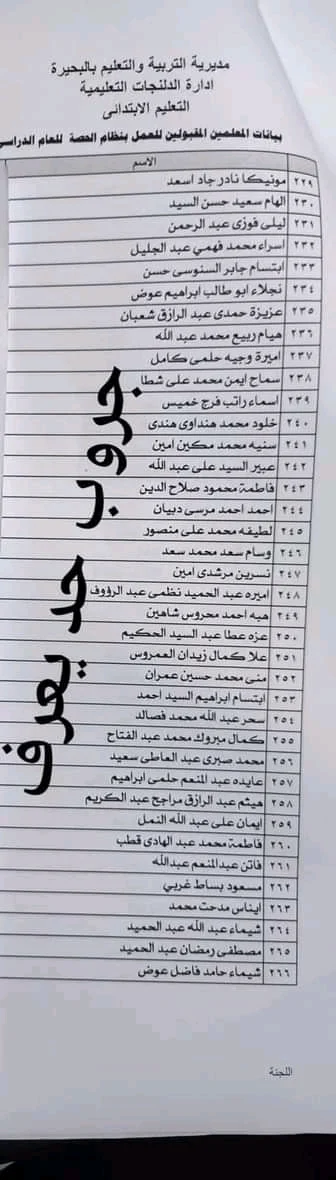 مديرية التربية والتعليم بالبحيرة
ادارة الدلنجات التعليمية
التعليم الابتدائى
بيانات المعلمين المقبولين للعمل بنظام الحصة للعام الدراسى
الاسم
٢٢٩ مونيكا نادر جاد اسعد
٢٣٠ الهام سعيد حسن السيد
٢٣١ ليلى فوزى عبد الرحمن
٢٣٢ اسراء محمد فهمي عبد الجليل
٢٣٣ ابتسام جابر السنوسى حسن
٢٣٤ نجلاء ابو طالب ابراهيم عوض
٢٣٥ عزيزة حمدى عبد الرازق شعبان
٢٣٦ هيام ربيع محمد عبد الله
٢٣٧ اميرة وجيه حلمى كامل
٢٣٨ سماح ايمن محمد على شطا
٢٣٩ اسماء راتب فرج خميس
٢٤٠ خلود محمد هنداوى هندى
٢٤١ سنيه محمد مكين امين
٢٤٢ عبير السيد على عبد الله
٢٤٣ فاطمة محمود صلاح الدين
٢٤٤ احمد احمد مرسى دبيان
٢٤٥ لطيفه محمد على منصور
٢٤٦ وسام سعد محمد سعد
٢٤٧ نسرين مرشدى امين
٢٤٨ اميره عبد الحميد نظمى عبد الرؤوف
٢٤٩ هبه احمد محروس شاهين
٢٥٠ عزه عطا عبد السيد الحكيم
٢٥١ علا كمال زيدان العمروس
٢٥٢ منى محمد حسين عمران
٢٥٣ ابتسام ابراهيم السيد احمد
٢٥٤ سحر عبد الله محمد فصالد
٢٥٥ كمال مبروك محمد عبد الفتاح
٢٥٦ محمد صبرى عبد العاطى سعيد
٢٥٧ عايده عبد المنعم حلمى ابراهيم
٢٥٨ هيثم عبد الرازق مراجح عبد الكريم
٢٥٩ ايمان على عبد الله النمل
٢٦٠ فاطمة محمد عبد الهادى قطب
٢٦١ فاتن عبدالمنعم عبدالله
٢٦٢ مسعود بساط غربي
٢٦٣ ايناس مدحت محمد
٢٦٤ شيماء عبد الله عبد الحميد
٢٦٥ مصطفى رمضان عبد الحميد
٢٦٦ شيماء حامد فاضل عوض
اللجنة
جروب حد يعرف